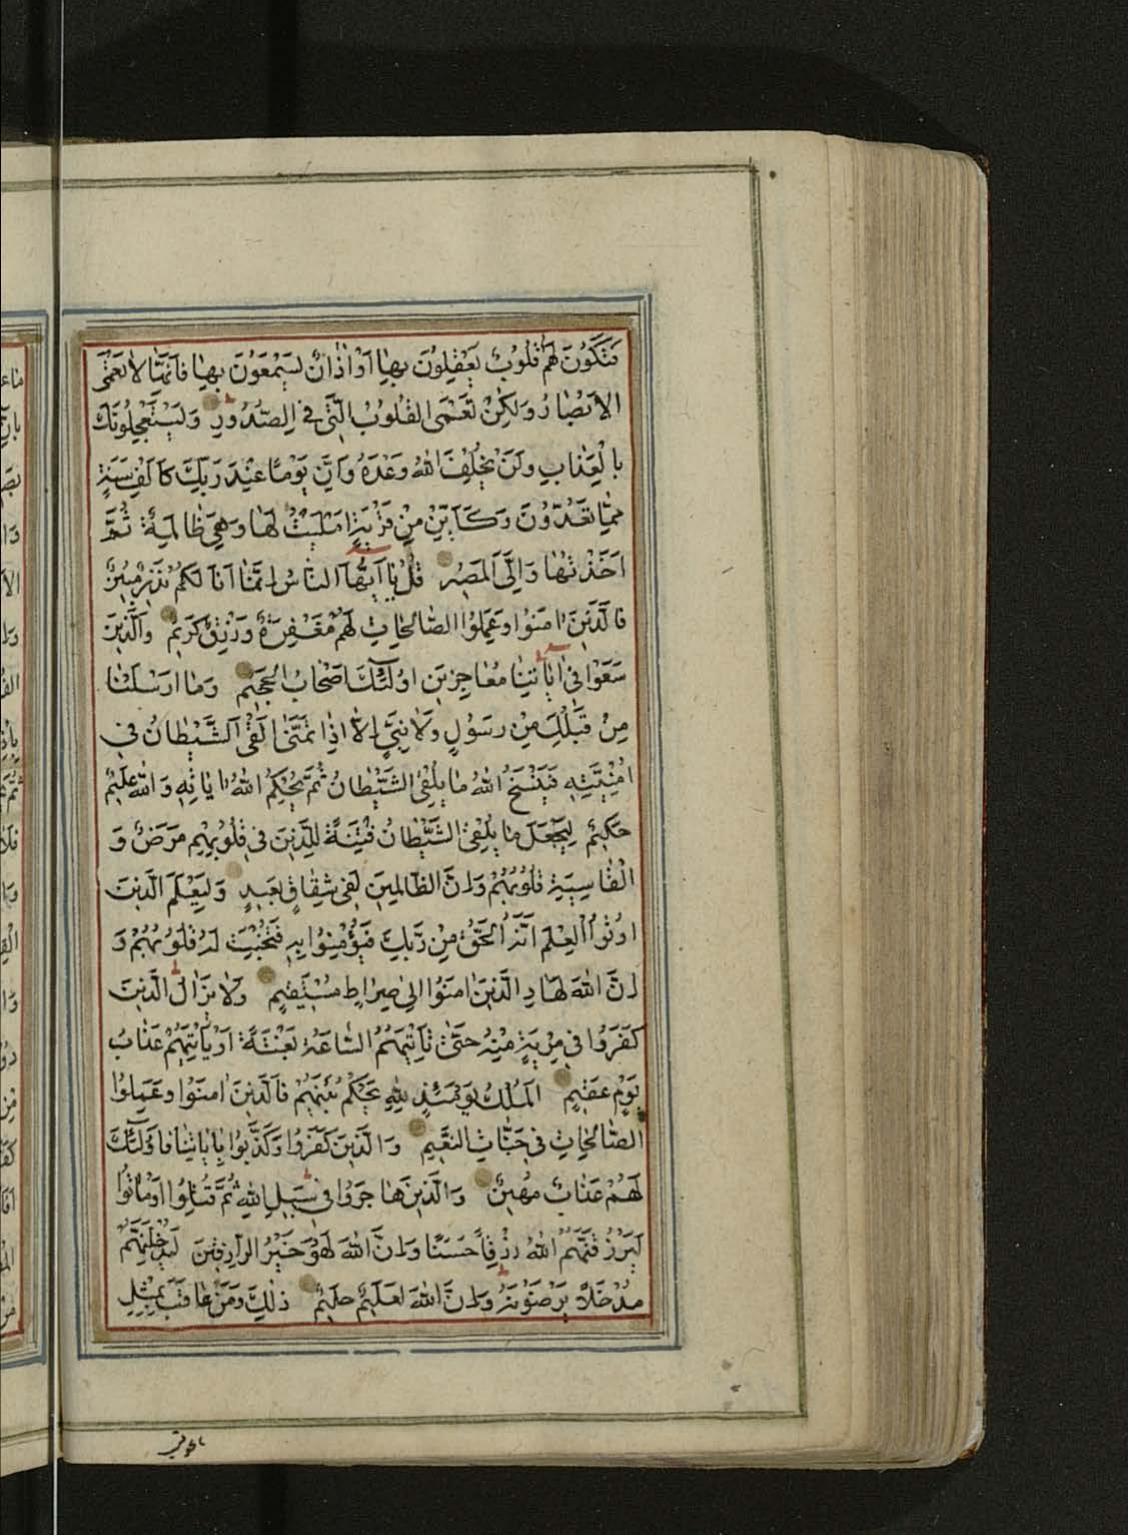 فَتَكُونَ لَهُمْ قُلُوبٌ يَعْقِلُونَ بِهَا اَوْ اٰذَانٌ يَسْمَعُونَ بِهَا فَاِنَّهَا لَا تَعْمَى
الْاَبْصَارُ وَلٰكِنْ تَعْمَى الْقُلُوبُ الَّتِى فِى الصُّدُورِ وَيَسْتَعْجِلُونَكَ
بِالْعَذَابِ وَلَنْ يُخْلِفَ اللّٰهُ وَعْدَهُ وَاِنَّ يَوْمًا عِنْدَ رَبِّكَ كَاَلْفِ سَنَةٍ
مِمَّا تَعُدُّونَ وَكَاَيِّنْ مِنْ قَرْيَةٍ اَمْلَيْتُ لَهَا وَهِىَ ظَالِمَةٌ ثُمَّ
اَخَذْتُهَا وَاِلَىَّ الْمَصِيرُ قُلْ يَا اَيُّهَا النَّاسُ اِنَّمَا اَنَا لَكُمْ نَذِيرٌ مُبِينٌ
فَالَّذِينَ اٰمَنُوا وَعَمِلُوا الصَّالِحَاتِ لَهُمْ مَغْفِرَةٌ وَرِزْقٌ كَرِيمٌ وَالَّذِينَ
سَعَوْا فِى اٰيَاتِنَا مُعَاجِزِينَ اُولٰٓئِكَ اَصْحَابُ الْجَحِيمِ وَمَا اَرْسَلْنَا
مِنْ قَبْلِكَ مِنْ رَسُولٍ وَلَا نَبِىٍّ اِلَّا اِذَا تَمَنّٰى اَلْقَى الشَّيْطَانُ فِى
اُمْنِيَّتِهِ فَيَنْسَخُ اللّٰهُ مَا يُلْقِى الشَّيْطَانُ ثُمَّ يُحْكِمُ اللّٰهُ اٰيَاتِهِ وَاللّٰهُ عَلِيمٌ
حَكِيمٌ لِيَجْعَلَ مَا يُلْقِى الشَّيْطَانُ فِتْنَةً لِلَّذِينَ فِى قُلُوبِهِمْ مَرَضٌ وَ
الْقَاسِيَةِ قُلُوبُهُمْ وَاِنَّ الظَّالِمِينَ لَفِى شِقَاقٍ بَعِيدٍ وَلِيَعْلَمَ الَّذِينَ
اُوتُوا الْعِلْمَ اَنَّهُ الْحَقُّ مِنْ رَبِّكَ فَيُؤْمِنُوا بِهِ فَتُخْبِتَ لَهُ قُلُوبُهُمْ وَ
اِنَّ اللّٰهَ لَهَادِ الَّذِينَ اٰمَنُوا اِلٰى صِرَاطٍ مُسْتَقِيمٍ وَلَا يَزَالُ الَّذِينَ
كَفَرُوا فِى مِرْيَةٍ مِنْهُ حَتّٰى تَاْتِيَهُمُ السَّاعَةُ بَغْتَةً اَوْ يَاْتِيَهُمْ عَذَابُ
يَوْمٍ عَقِيمٍ اَلْمُلْكُ يَوْمَئِذٍ لِلّٰهِ يَحْكُمُ بَيْنَهُمْ فَالَّذِينَ اٰمَنُوا وَعَمِلُوا
الصَّالِحَاتِ فِى جَنَّاتِ النَّعِيمِ وَالَّذِينَ كَفَرُوا وَكَذَّبُوا بِاٰيَاتِنَا فَاُولٰٓئِكَ
لَهُمْ عَذَابٌ مُهِينٌ وَالَّذِينَ هَاجَرُوا فِى سَبِيلِ اللّٰهِ ثُمَّ قُتِلُوا اَوْ مَاتُوا
لَيَرْزُقَنَّهُمُ اللّٰهُ رِزْقًا حَسَنًا وَاِنَّ اللّٰهَ لَهُوَ خَيْرُ الرَّازِقِينَ لَيُدْخِلَنَّهُمْ
مُدْخَلًا يَرْضَوْنَهُ وَاِنَّ اللّٰهَ لَعَلِيمٌ حَلِيمٌ ذٰلِكَ وَمَنْ عَاقَبَ بِمِثْلِ
ما عوقب